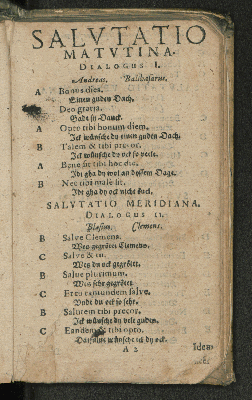 SALVTATIO
MATVTINA.
DIALOGUS I.
Andreas. Balthasarus.
A Bonus dies.
Einen guden Dach.
Deo gratia.
Gade sy Danck.
A Opto tibi bonum diem.
Ick wünsche dy einen guden Dach.
B Talem & tibi precor.
Ick wünsche dy ock so veele.
A Bene sit tibi hoc die.
Idt gha dy wol an dyssem Dage.
B Nec tibi male sit.
Idt gha dy ock nicht övel.
SALVTATIO MERIDIANA.
DIALOGUS II.
Blasius. Clemens.
B Salve Clemens.
Weß gegrötet Clemens.
C Salve & tu.
Weß du ock gegrötet.
B Salve plurimum.
Weß sehr gegrötet
C Et tu tantundem salve.
Vnde du ock so sehr.
B Salutem tibi precor.
Ick wünsche dy vele guden.
C Eandem & tibi opto.
Datsülve wünsche ick dy ock.
A 2 Idem